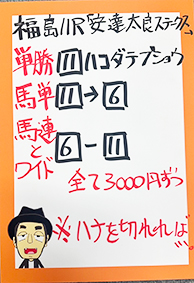 福島11R「安達太良ステークス」
単勝 11 ハコダテブショウ
馬単 11→6
馬連とワイド 6-11
全て3000円ずつ
※ハナを切れれば…。